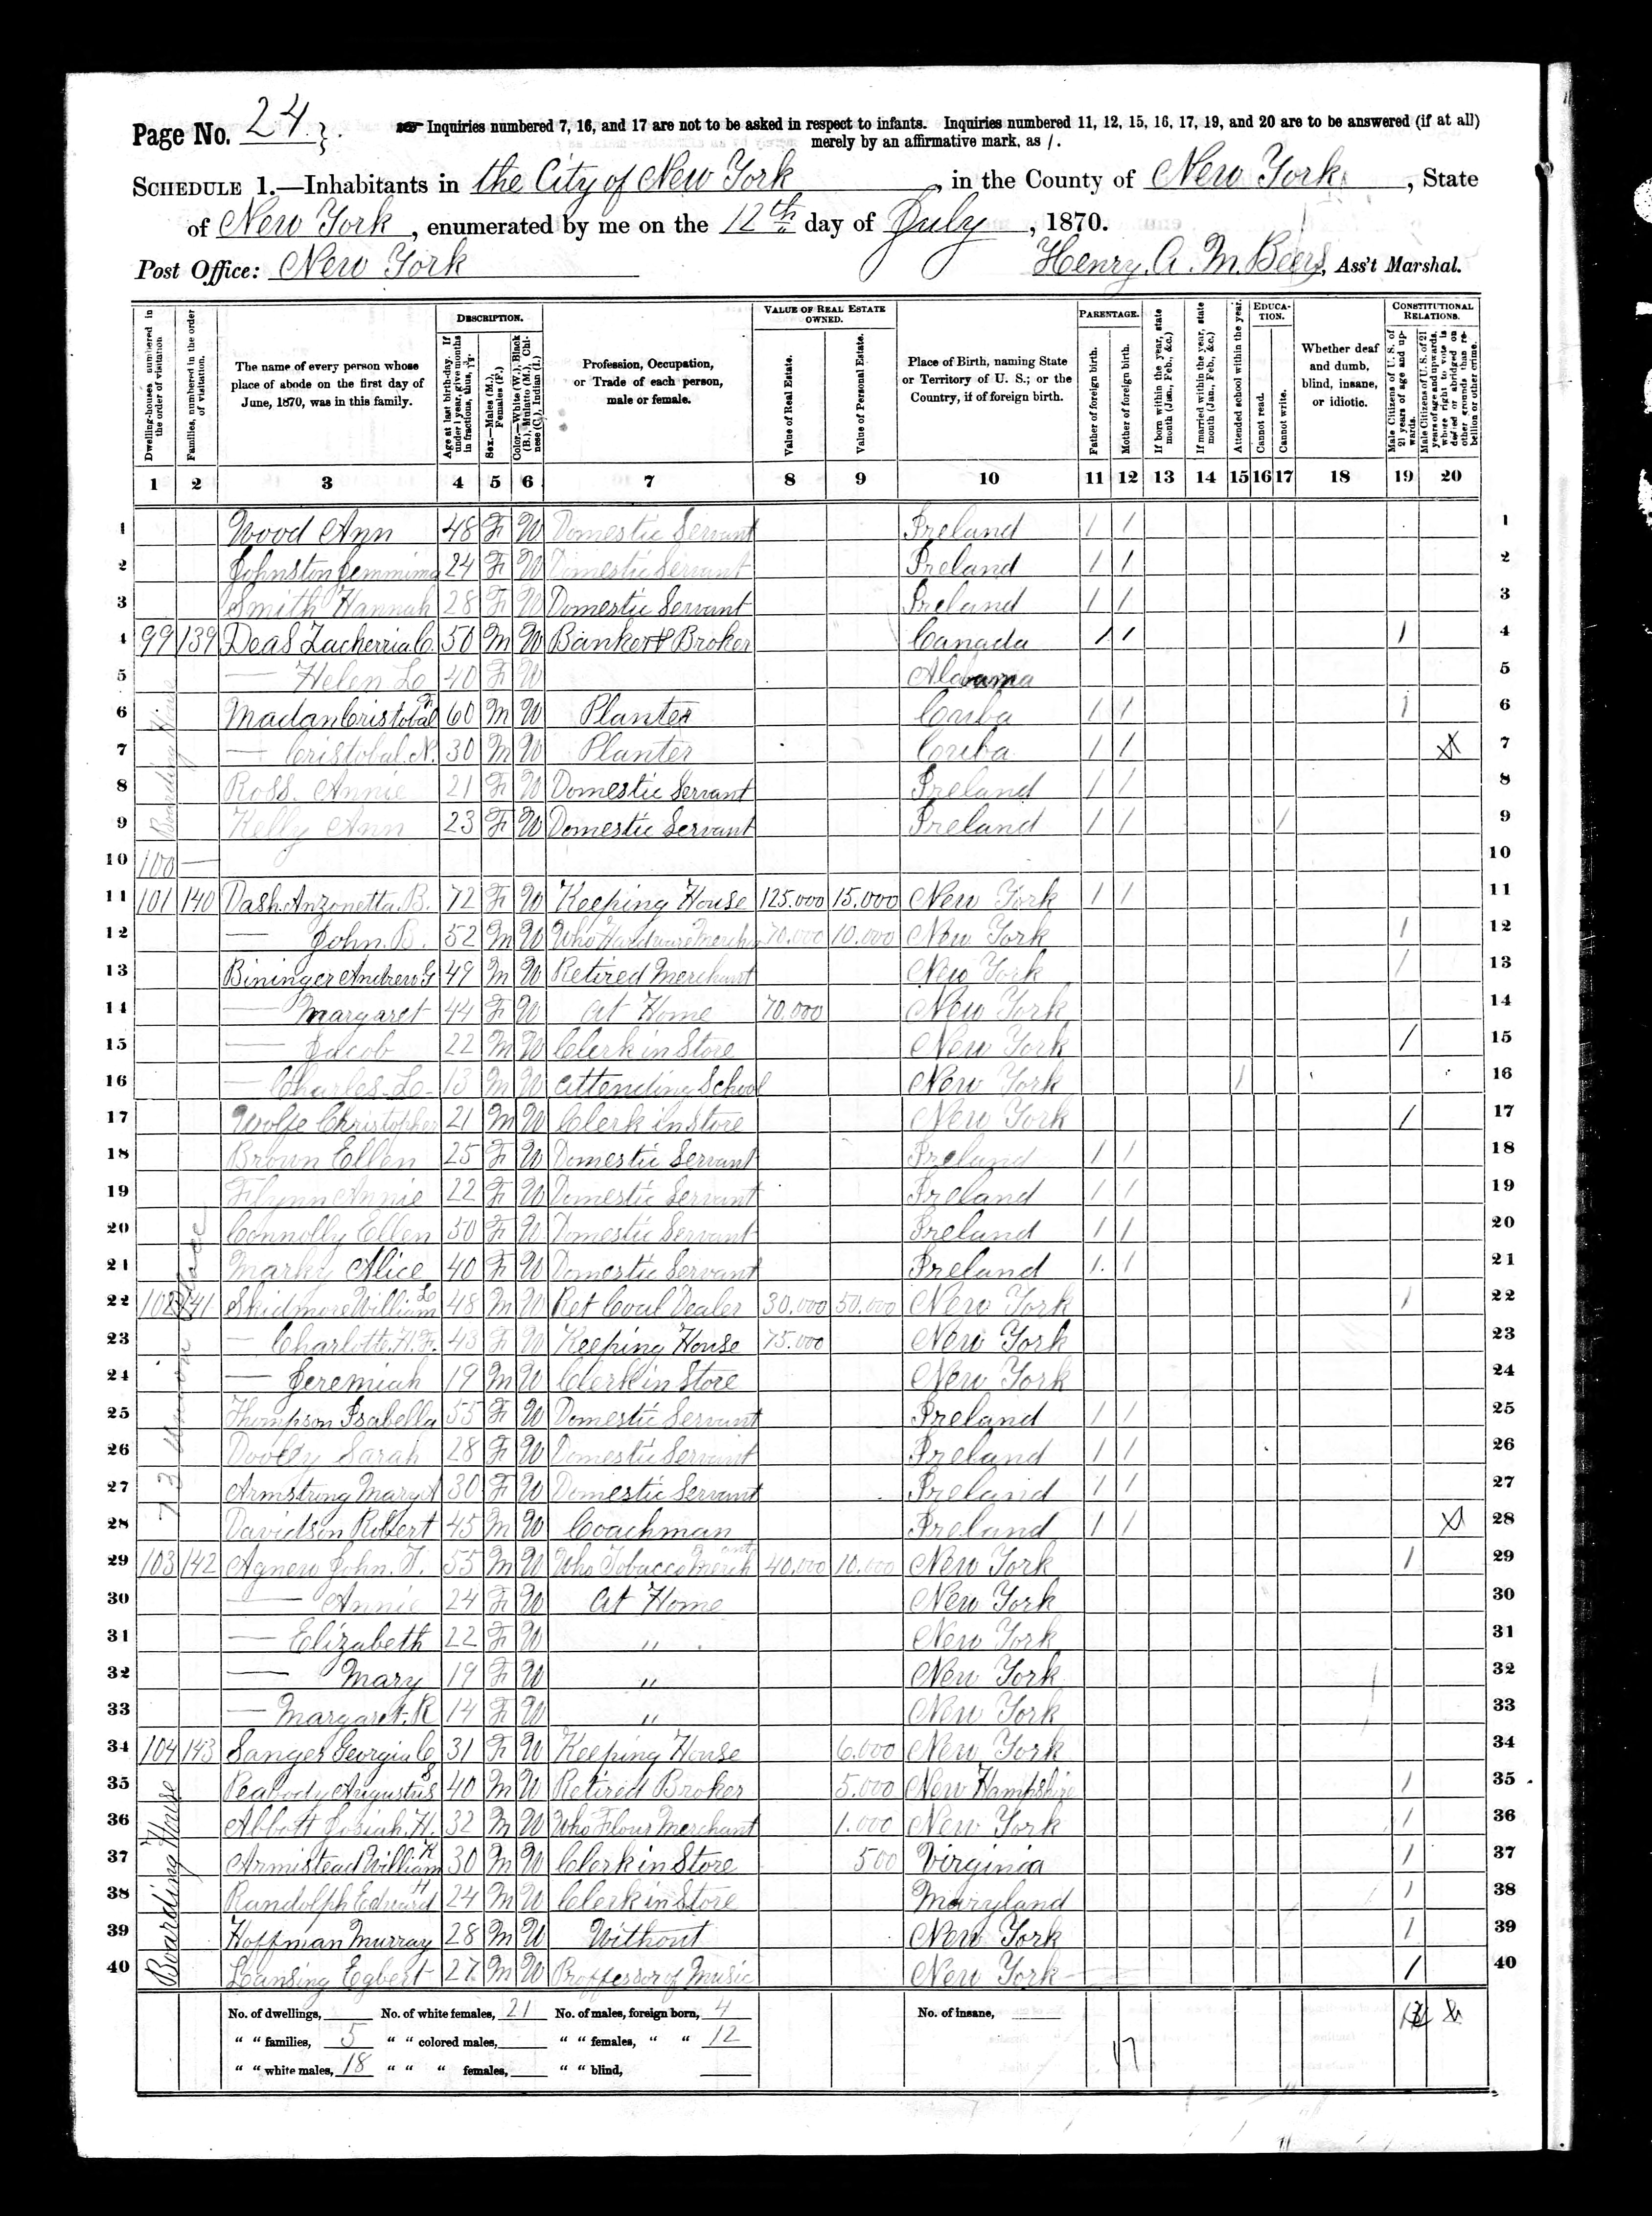 Page No. 24.
Inquiries numbered 7, 16, and 17 are not to be asked in respect to infants. Inquiries numbered 11, 12, 15, 16, 17, 19, and 20 are to be answered (if at all)
merely by an affirmative mark, as /.
SCHEDULE 1.—Inhabitants in the City of New York, in the County of New York, State
of New York, enumerated by me on the 12th day of July, 1870.
Post Office: New York Henry. A. M. Beers, Ass't Marshal.
Dwelling-houses numbered in the order of visitation.
Families, numbered in the order of visitation.
The name of every person whose place of abode on the first day of June, 1870, was in this family.
DESCRIPTION.
Age at last birth-day. If under 1 year, give months in fractions, thus,
Sex.—Males (M.), Females (F.)
Color.—White (W.), Black (B.), Mulatto (M.), Chinese (C.), Indian (I.)
Profession, Occupation, or Trade of each person, male or female.
VALUE OF REAL ESTATE OWNED.
Value of Real Estate.
Value of Personal Estate.
Place of Birth, naming State or Territory of U. S.; or the Country, if of foreign birth.
PARENTAGE.
Father of foreign birth.
Mother of foreign birth.
If born within the year, state month (Jan., Feb., &c.)
If married within the year, state month (Jan., Feb., &c.)
Attended school within the year.
EDUCATION.
Cannot read.
Cannot write.
Whether deaf and dumb, blind, insane, or idiotic.
CONSTITUTIONAL RELATIONS.
Male Citizens of U. S. of 21 years of age and upwards.
Male Citizens of U. S. of 21 years of age and upwards, where right to vote is denied or abridged on other grounds than rebellion or other crime.
1 2 3 4 5 6 7 8 9 10 11 12 13 14 15 16 17 18 19 20
1 Wood Ann 48 F W Domestic Servant Ireland / / 1
2 Johnston Jemmima 24 F W Domestic Servant Ireland / / 2
3 Smith Hannah 28 F W Domestic Servant Ireland / / 3
4 99 139 Deas Zacherria C. 50 M W Banker & Broker Canada / / / 4
5 — Helen L. 40 F W Alabama 5
6 Madan Cristobal 60 M W Planter Cuba / / / 6
7 — Cristobal. N. 30 M W Planter Cuba / / X 7
8 Ross. Annie 21 F W Domestic Servant Ireland / / 8
9 Kelly Ann 23 F W Domestic Servant Ireland / / / 9
Boarding House
10 100 — 10
11 101 140 Dash Anzonetta. B. 72 F W Keeping House 125.000 15.000 New York / / 11
12 — John. B. 52 M W Who Hardware Merch 70.000 10.000 New York / 12
13 Bininger Andrew G 49 M W Retired Merchant New York / 13
14 — Margaret 44 F W At Home 70.000 New York 14
15 — Jacob 22 M W Clerk in Store New York / 15
16 — Charles L. 13 M W Attending School New York / 16
17 Wolfe Christopher 21 M W Clerk in Store New York / 17
18 Brown Ellen 25 F W Domestic Servant Ireland / / 18
19 Flynn Annie 22 F W Domestic Servant Ireland / / 19
20 Connolly Ellen 50 F W Domestic Servant Ireland / / 20
21 Marky Alice 40 F W Domestic Servant Ireland / / 21
22 102 141 Skidmore William L 48 M W Ret Coal Dealer 30.000 50.000 New York / 22
23 — Charlotte. H. F. 43 F W Keeping House 75.000 New York 23
24 — Jeremiah 19 M W Clerk in Store New York 24
25 Thompson Isabella 55 F W Domestic Servant Ireland / / 25
26 Dooley Sarah 28 F W Domestic Servant Ireland / / 26
27 Armstrong Mary A 30 F W Domestic Servant Ireland / / 27
28 Davidson Robert 45 M W Coachman Ireland / / X 28
73 Union Place
29 103 142 Agnew John. T. 55 M W Who Tobacco Merchant 40.000 10.000 New York / 29
30 — Annie 24 F W At Home New York 30
31 — Elizabeth 22 F W " New York 31
32 — Mary 19 F W " New York 32
33 — Margaret. R 14 F W " New York 33
34 104 143 Sanger Georgia C 31 F W Keeping House 6.000 New York 34
35 Peabody Augustus S 40 M W Retired Broker 5.000 New Hampshire / 35
36 Abbott Josiah. H. 32 M W Who Flour Merchant 1.000 New York / 36
37 Armistead William K 30 M W Clerk in Store 500 Virginia / 37
38 Randolph Edward H 24 M W Clerk in Store Maryland / 38
39 Hoffman Murray 28 M W Without New York / 39
40 Leansing Egbert 27 M W Proffessor of Music New York / 40
Boarding House
No. of dwellings, No. of white females, 21 No. of males, foreign born, 4 No. of insane,
" " families, 5 " " colored males, " " females, " " 12
" " white males, 18 " " " females, " " blind, 17